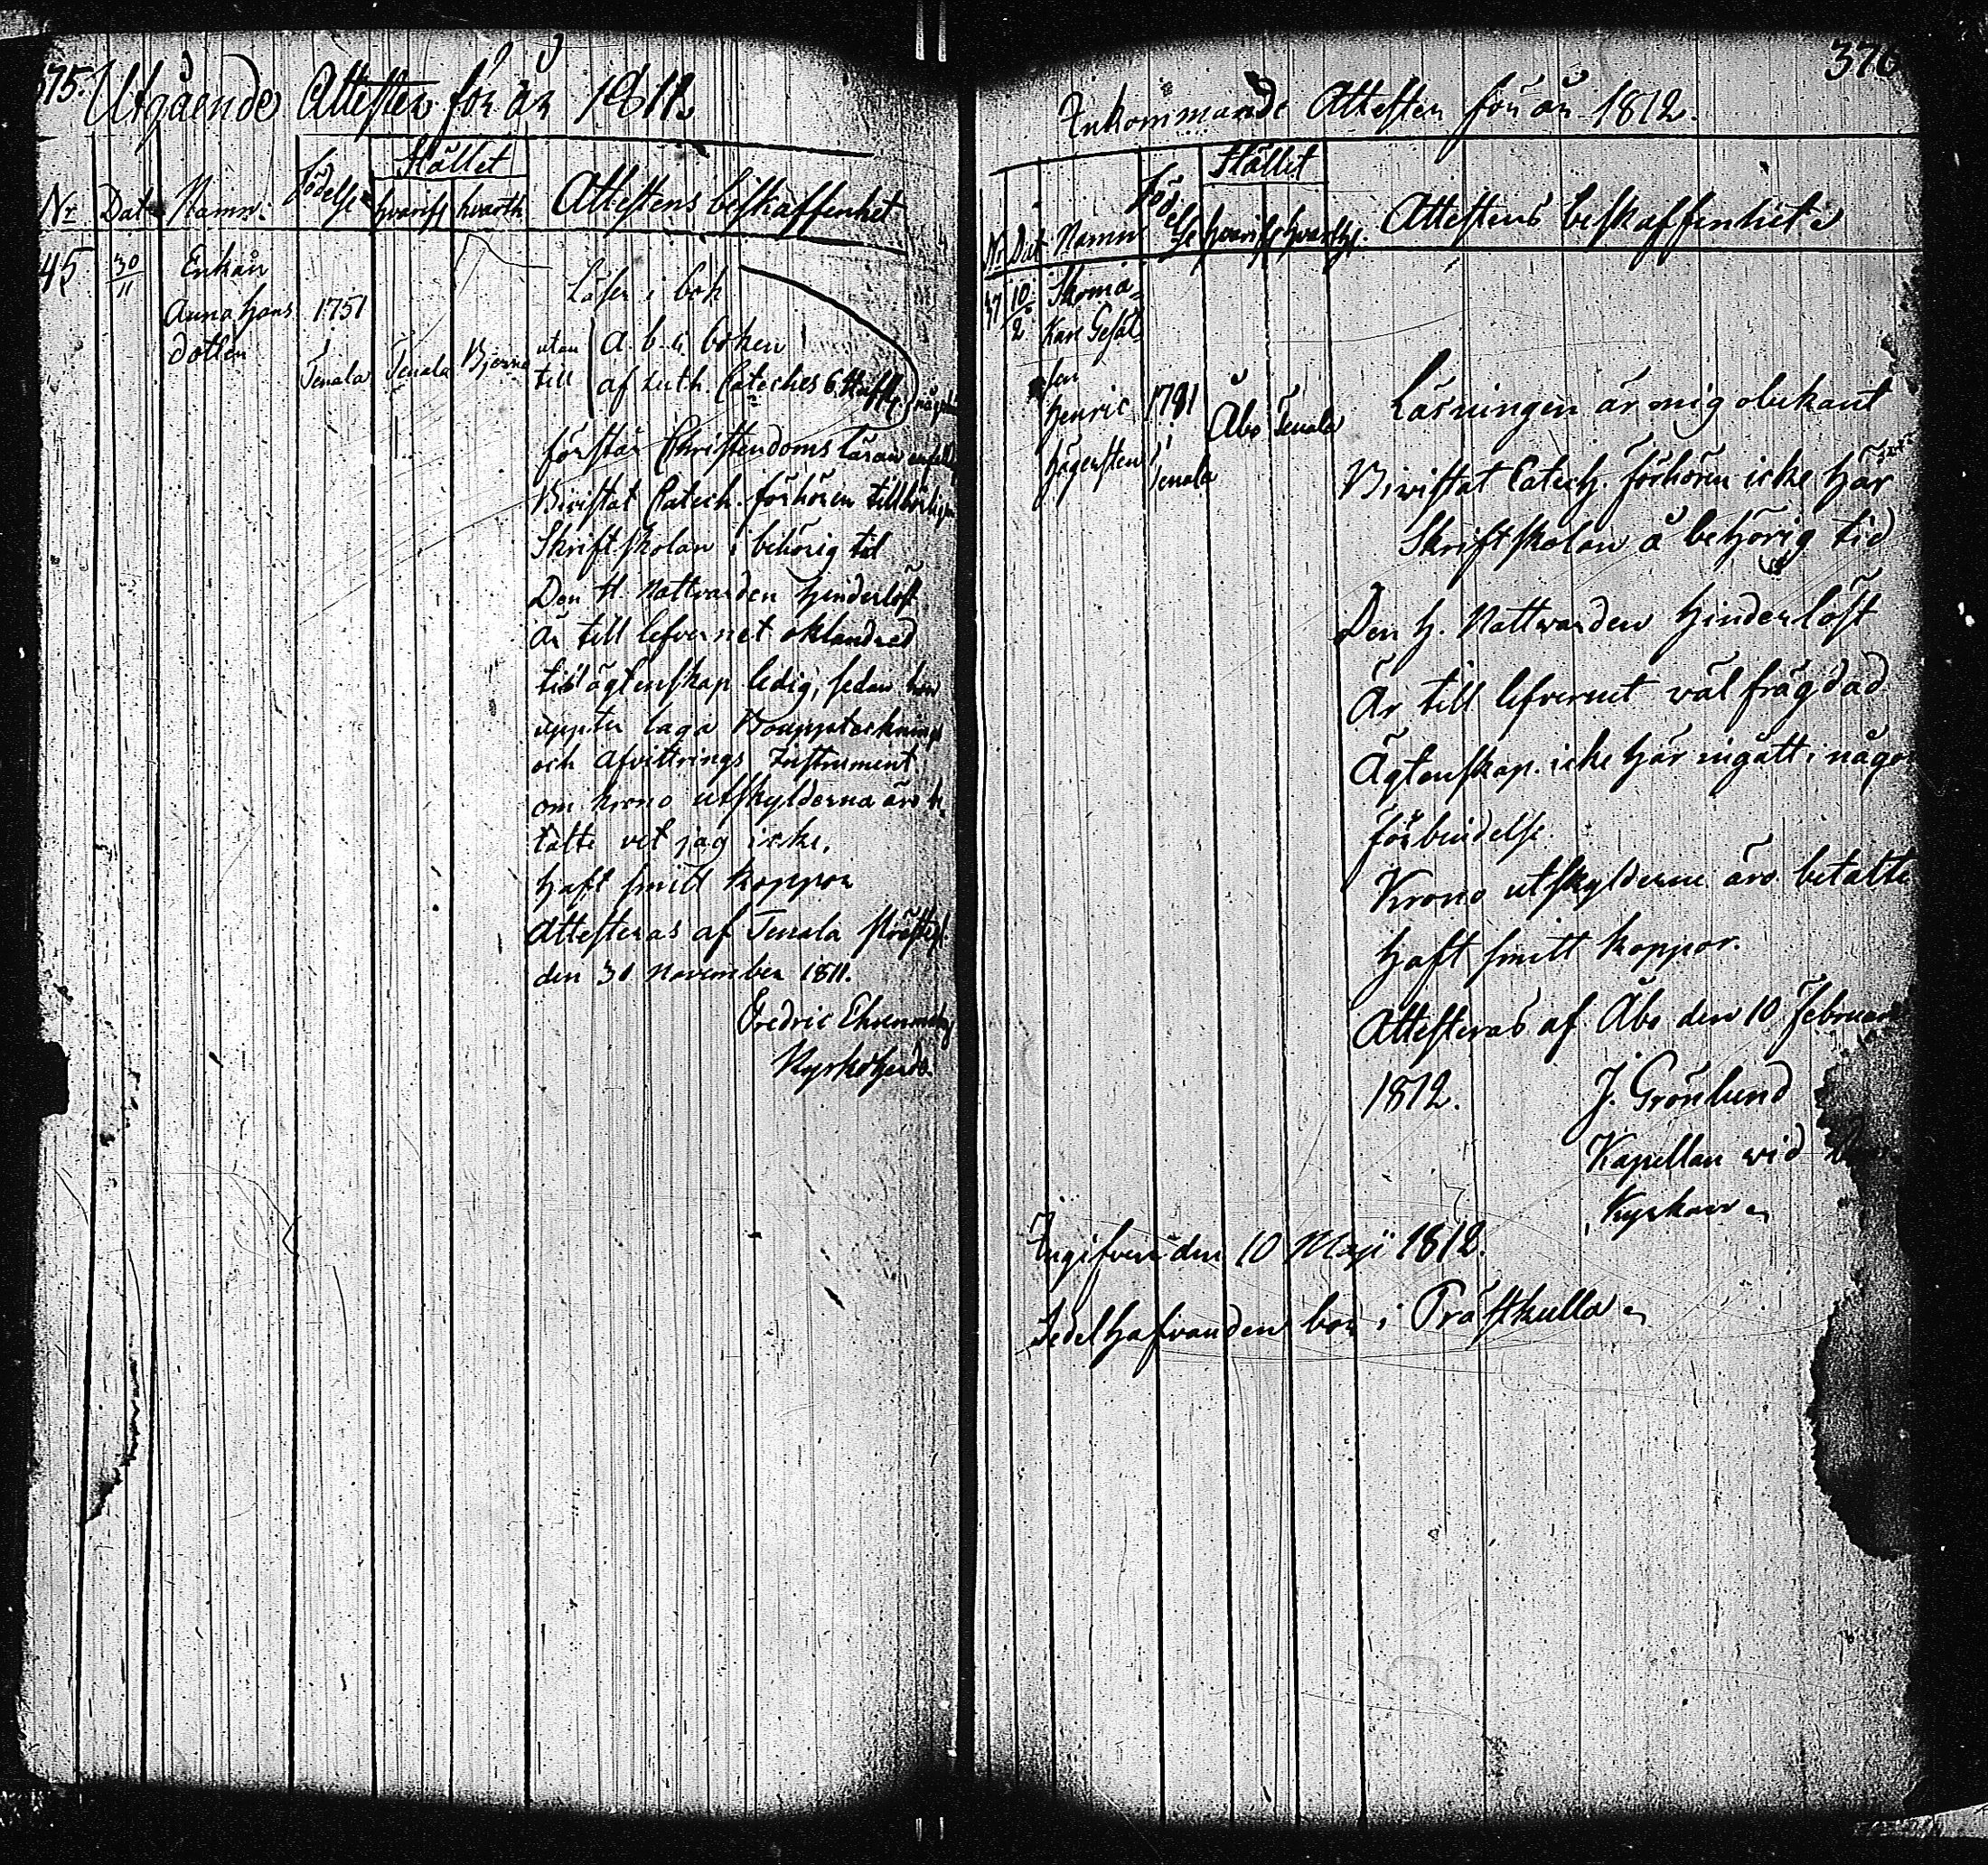 375. Utgående Attester för år 1811.
Nr Dat Namn: Födelse Stället hvarifr hvarth. Attestens beskaffenhet
45 30/11 Enkan
Anna Hans 1751
dotter
Tenala Tenala Bjerno
Läser i bok
utan till a. b. c. boken
af Luth. Cateches 6. Hufst.
förstår Christendoms läran
Bivistat Catech. förhören
Skriftskolan i behörig tid
Den H. Nattvarden hinderlöst
Är till lefvernet oklandrad
till ägtenskap ledig, sedan hon
uppter laga Bouppteckning
och afvittrings Instrument.
om krono utskylderna äro be
talte vet jag icke.
Haft smitt koppor
Attesteras af Tenala
den 30 November 1811.
Fredric
Kyrkoherde.
376
Inkommande Attester för år 1812.
Nr Dat Namn Födelse Stället hvarifr hvarth. Attestens beskaffenhet
37 10/2 Skoma-
kare Gesäl-
len
Henric 1781
Hägersten i
Tenala
Åbo Tenala
Läsningen är mig obekant
Bivistat Catech. förhören icke här
Skriftskolan å behörig tid
Den H. Nattwarden hinderlöst
Är till lefvernet väl frägdad
Ägtenskap. icke här ingått i någon
förbindelse.
Krono utskylderne äro betalte
Haft smitt koppor.
Attesteras af Åbo den 10 Februari
1812. J. Grönlund
Kapellan wid
Kyrkan
Ingifven den 10 Maji 1812.
Sedelhafvanden bor i Prästkulla